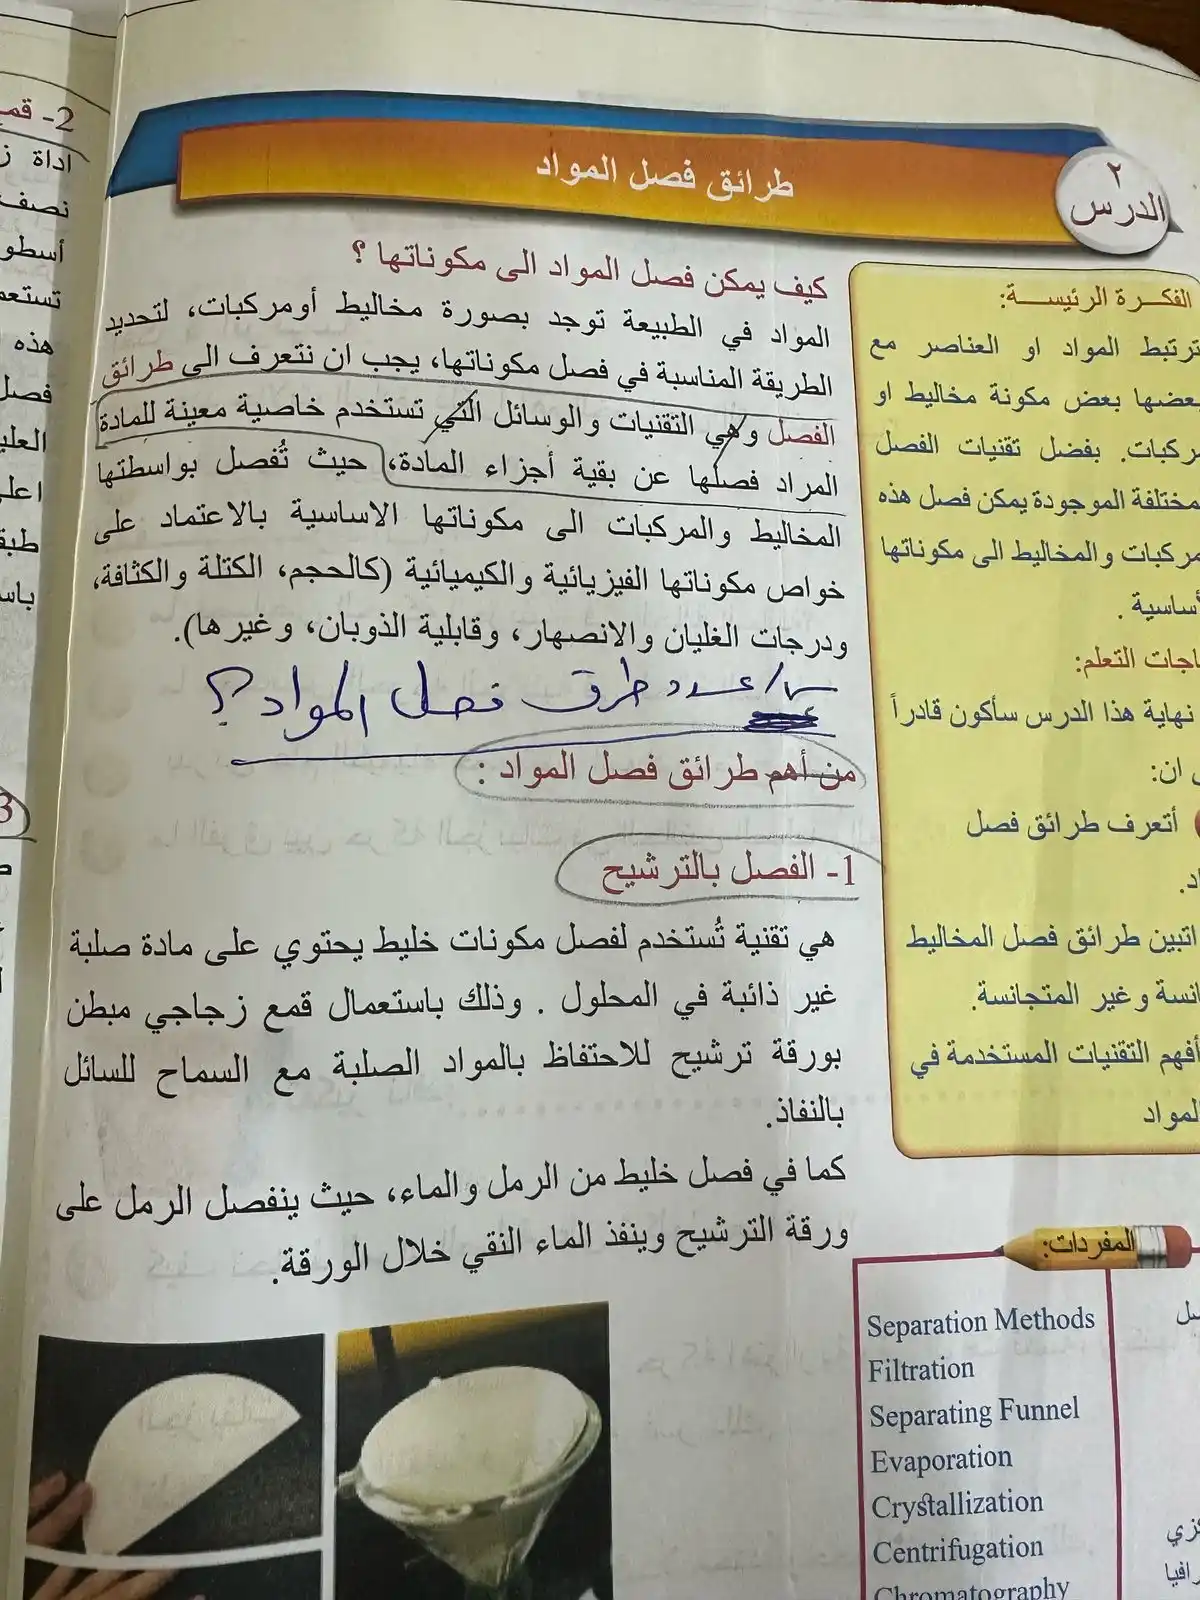 الدرس ٢
طرائق فصل المواد
الفكـرة الرئيســـة:
ترتبط المواد او العناصر مع
بعضها بعض مكونة مخاليط او
مركبات. بفضل تقنيات الفصل
مختلفة الموجودة يمكن فصل هذه
مركبات والمخاليط الى مكوناتها
أساسية .
اجات التعلم:
نهاية هذا الدرس سأكون قادراً
ان:
أتعرف طرائق فصل
اتبين طرائق فصل المخاليط
انسة وغير المتجانسة.
أفهم التقنيات المستخدمة في
المواد
كيف يمكن فصل المواد الى مكوناتها ؟
المواد في الطبيعة توجد بصورة مخاليط أومركبات، لتحديد
الطريقة المناسبة في فصل مكوناتها، يجب ان نتعرف الى طرائق
الفصل وهي التقنيات والوسائل التي تستخدم خاصية معينة للمادة
المراد فصلها عن بقية أجزاء المادة، حيث تُفصل بواسطتها
المخاليط والمركبات الى مكوناتها الاساسية بالاعتماد على
خواص مكوناتها الفيزيائية والكيميائية (كالحجم، الكتلة والكثافة،
ودرجات الغليان والانصهار، وقابلية الذوبان، وغيرها).
س/ عدد طرق فصل المواد؟
من أهم طرائق فصل المواد :
1- الفصل بالترشيح
هي تقنية تُستخدم لفصل مكونات خليط يحتوي على مادة صلبة
غير ذائبة في المحلول . وذلك باستعمال قمع زجاجي مبطن
بورقة ترشيح للاحتفاظ بالمواد الصلبة مع السماح للسائل
بالنفاذ.
كما في فصل خليط من الرمل والماء، حيث ينفصل الرمل على
ورقة الترشيح وينفذ الماء النقي خلال الورقة.
المفردات:
Separation Methods
Filtration
Separating Funnel
Evaporation
Crystallization
Centrifugation
Chromatography
2- قمع
اداة
نصف
تستعم
هذه
فصل
3